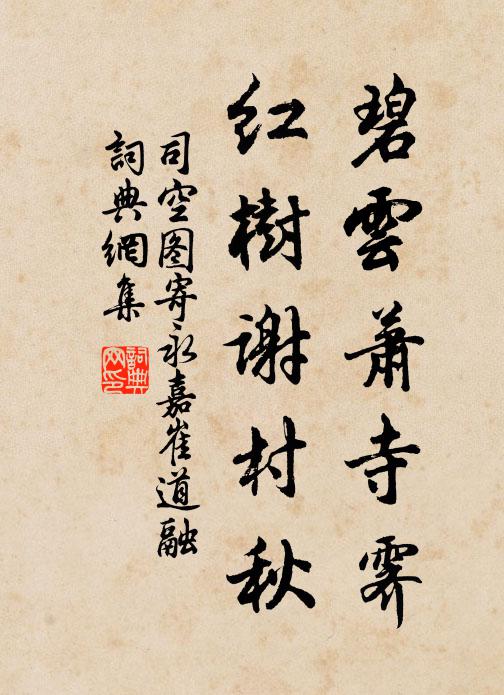 碧雲蕭寺霽
紅樹謝村秋
司空图寄永嘉崔道融
詞典網集
詞典网印